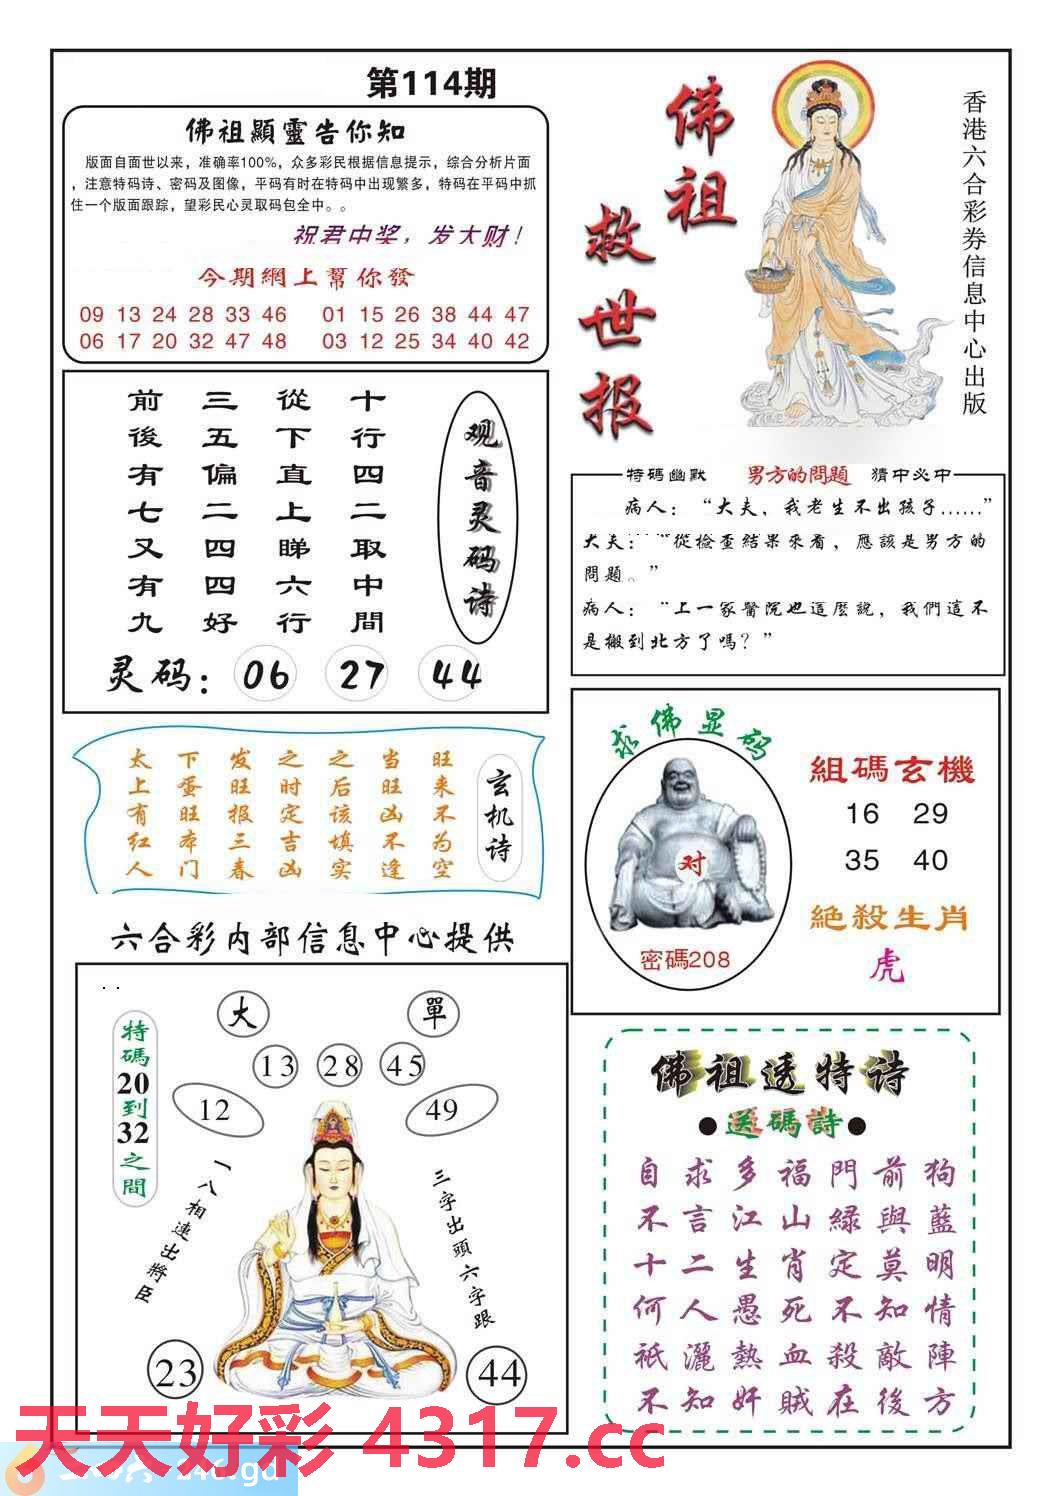 第114期
佛祖顯靈告你知
版面自面世以来，准确率100%，众多彩民根据信息提示，综合分析片面
，注意特码诗、密码及图像，平码有时在特码中出现繁多，特码在平码中抓
住一个版面跟踪，望彩民心灵取码包全中。。
祝君中奖，发大财！
今期網上幫你發
09 13 24 28 33 46 01 15 26 38 44 47
06 17 20 32 47 48 03 12 25 34 40 42
佛祖
救世报
香港六合彩券信息中心出版
前三從十
後五下行
有偏直四
七二上二
又四睇取
有四六中
九好行間
观音灵码诗
灵码：06 27 44
特碼幽默 男方的問題 猜中必中
病人：“大夫，我老生不出孩子……”
大夫：“從檢查結果來看，應該是男方的
問題。”
病人：“上一家醫院也這麼說，我們這不
是搬到北方了嗎？”
太下发之之当旺
上蛋旺时后旺来
有旺报定该凶不
红本三吉填不为
人门春凶实逢空
玄机诗
求佛显码
对
密碼208
組碼玄機
16 29
35 40
絕殺生肖
虎
六合彩内部信息中心提供
大 單
13 28 45
12 49
特碼20到32之間
一八相連出將臣
三字出頭六字跟
23 44
佛祖透特诗
●送碼詩●
自求多福門前狗
不言江山綠與藍
十二生肖定莫明
何人愚死不知情
祇灑熱血殺敵陣
不知奸賊在後方
天天好彩 4317.cc
246.gd